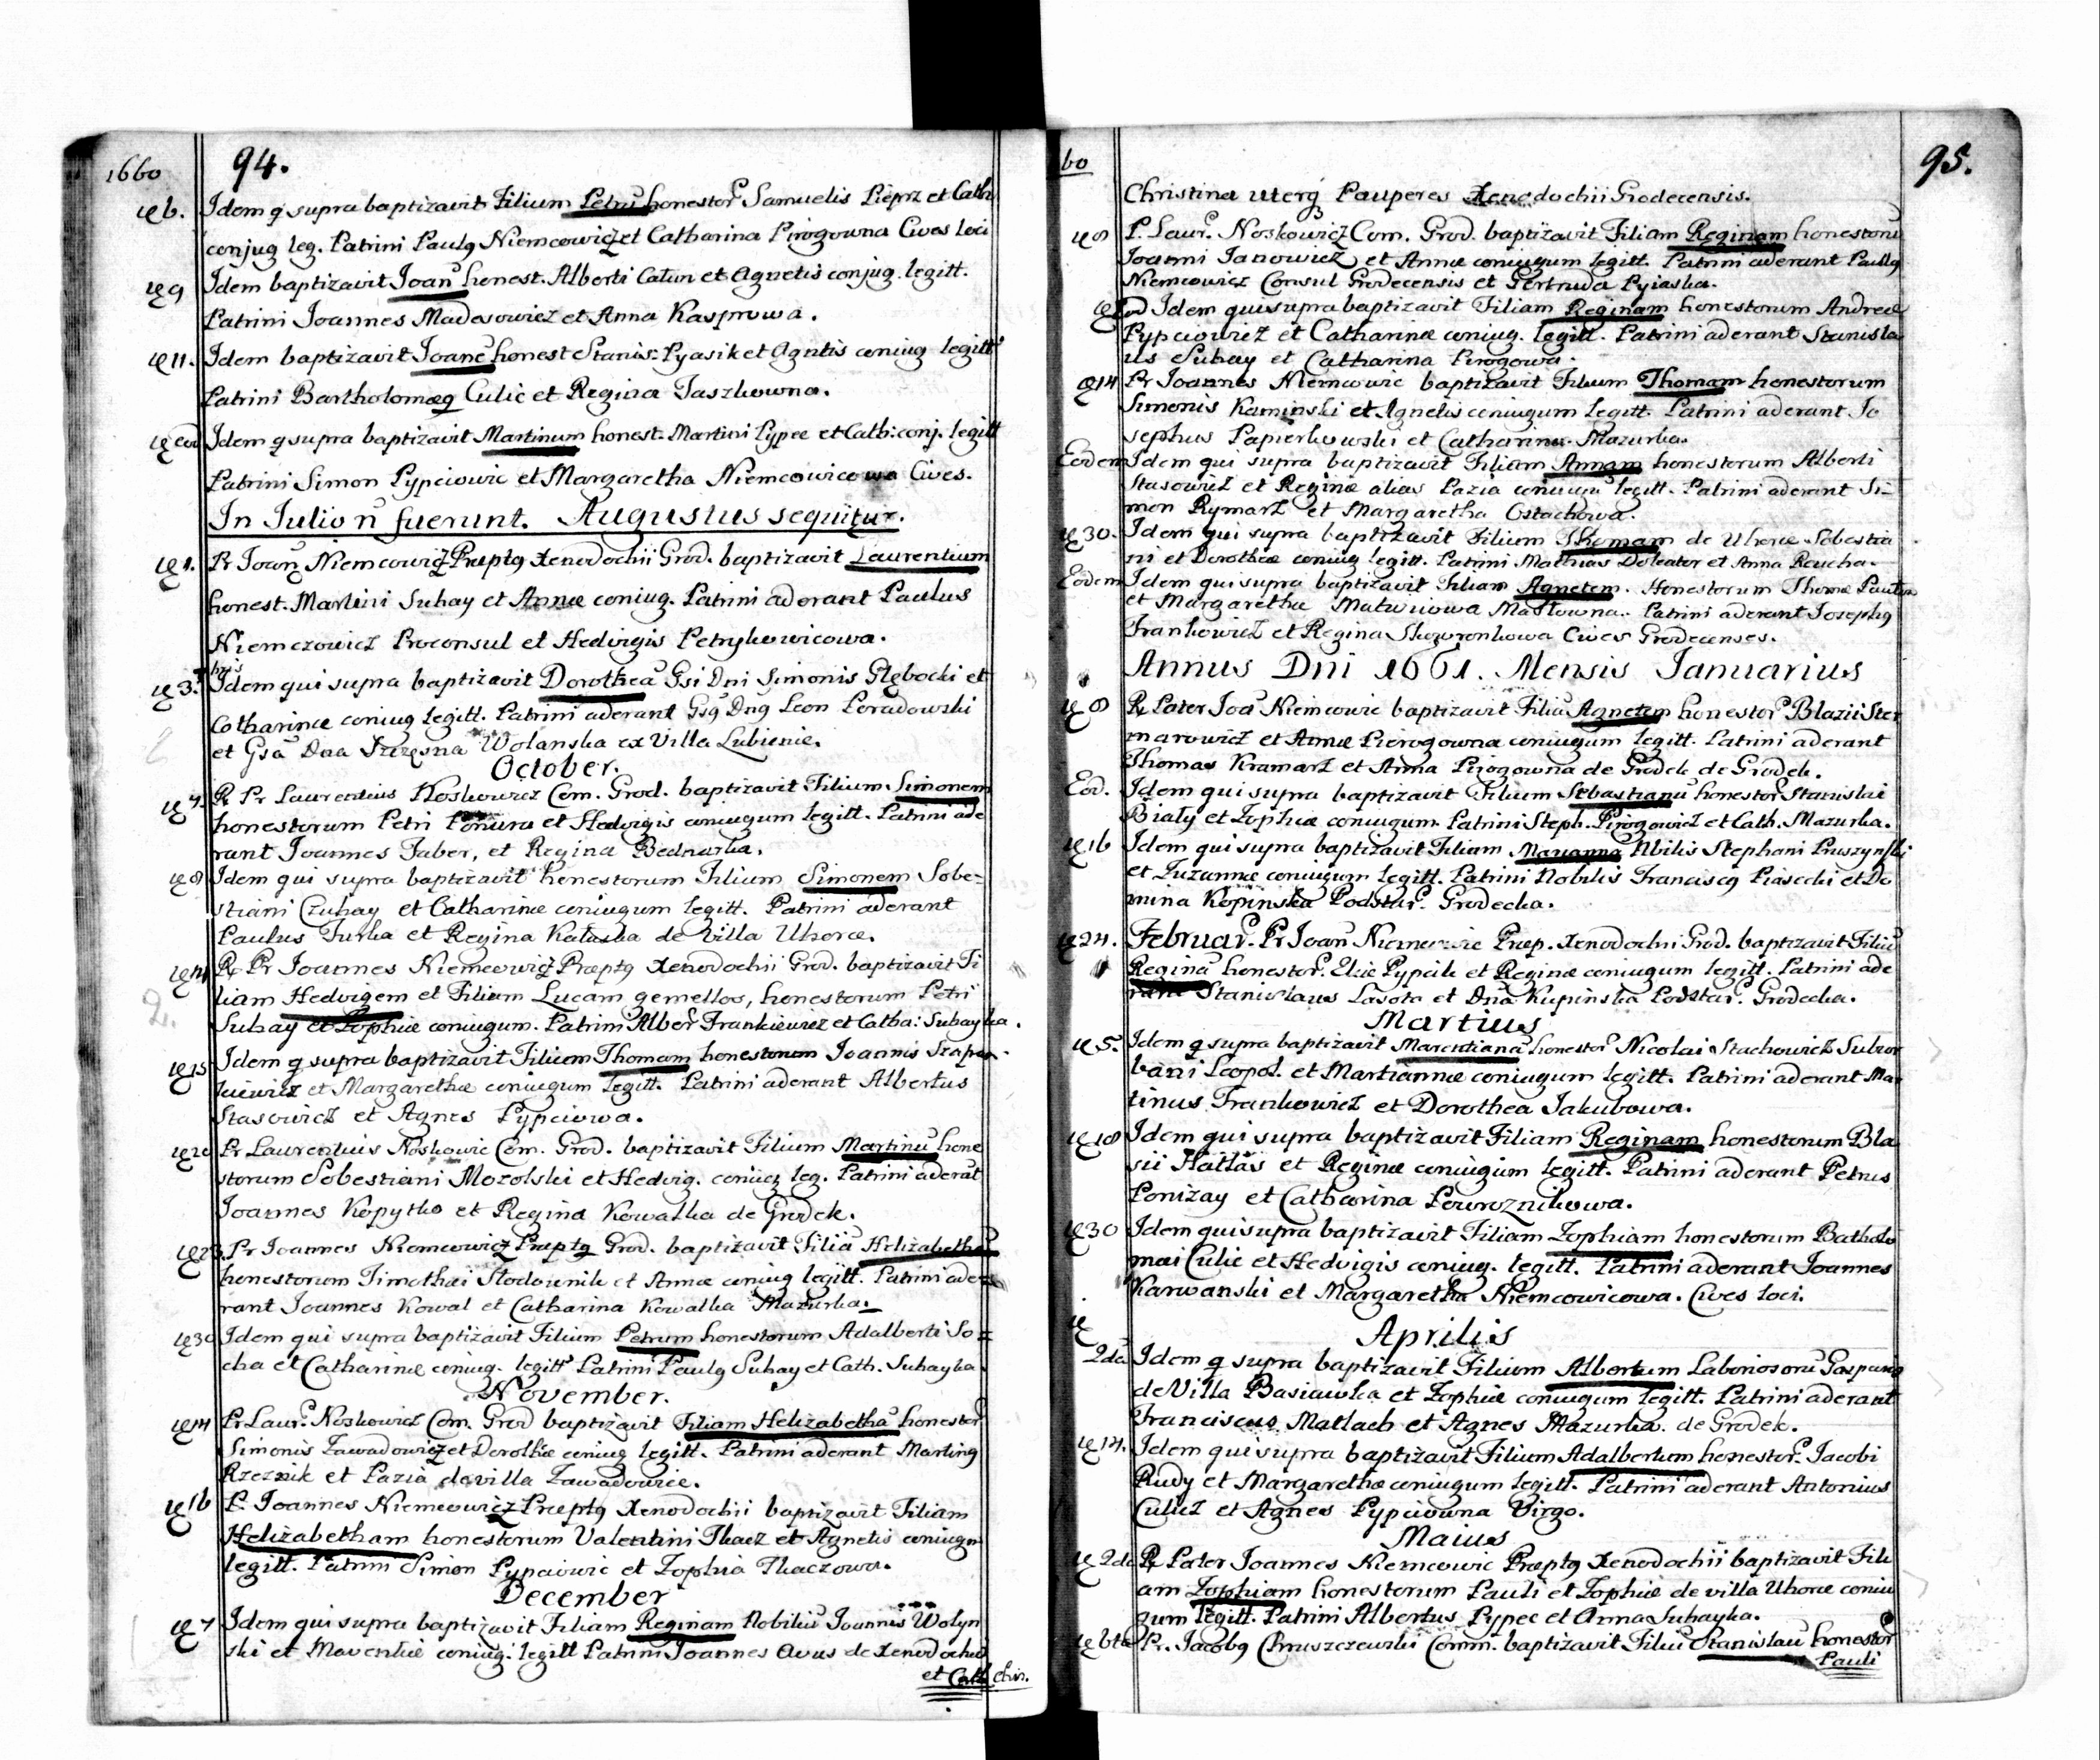 1660
94.
𝔢 6. Idem q supra baptizavit Filium Petrũ honestor Samuelis Pieprz et Cath
conjug leg. Patrini Paulq Niemcowicz et Catharina Pirogowna Cives loci
9 Idem baptizavit Joanẽ honest. Alberti Catun et Agnetis conjug. legitt.
Patrini Joannes Madesowicz et Anna Kasprowa.
11. Idem baptizavit Joanẽ honest Stanis: Pyasik et Agntis coniug legitt
Patrini Bartholomæq Culic et Regina Jaszkowna.
eod Idem q supra baptizavit Martinum honest. Martini Pypec et Cath: conj. legitt
Patrini Simon Pypciowic et Margaretha Niemcowicowa Cives.
In Julio ñ fuerunt. Augustus sequitur.
1. Pr Joanq Niemcowicz Præptq Xenodochii Grod. baptizavit Laurentium
honest. Martini Suhay et Annæ coniug. Patrini aderant Paulus
Niemczowicz Proconsul et Hedvigis Petrykowicowa.
3. Idem qui supra baptizavit Dorotheã Gsi Dni Simonis Głębocki et
Catharinæ coniug legitt. Patrini aderant Gsq Dnq Leon Poradowski
et Gsã Dna Szczęsna Wolanska ex Villa Lubienie.
October.
7. R Pr Laurentius Noskowicz Com. Grod. baptizavit Filium Simonem
honestorum Petri Ponura et Hedvigis coniugum legitt. Patrini ade
rant Joannes Faber, et Regina Bednarka.
8 Idem qui supra baptizavit honestorum Filium Simonem Sobe=
stiani Czuhay et Catharinæ coniugum legitt. Patrini aderant
Paulus Turka et Regina Katuska de Villa Uhorce.
14 R Pr Joannes Niemcowicz Præptq Xenodochii Grod. baptizavit Fi
2. liam Hedvigem et Filium Lucam gemellos, honestorum Petri
Suhay et Zophiæ coniugum. Patrini Alber Frankiewicz et Catha: Suhayka.
15 Idem q supra baptizavit Filium Thomam honestorum Joannis Szapar-
kiewicz et Margarethæ coniugum legitt. Patrini aderant Albertus
Stasowicz et Agnes Pypciowa.
20 Pr Laurentius Noskowic Com. Grod. baptizavit Filium Martinũ hone
storum Sobestiani Mozolski et Hedvig. coniug leg. Patrini aderãt
Joannes Kopytko et Regina Kowalka de Grodek.
23 Pr Joannes Niemcowicz Præptq Grod. baptizavit Filiã Helizabetham
honestorum Timothei Stodownik et Annæ coniug legitt. Patrini ade
rant Joannes Kowal et Catharina Kowalka Mazurka.
30 Idem qui supra baptizavit Filium Petrum honestorum Adalberti So=
cha et Catharinæ coniug. legitt Patrini Paulq Suhay et Cath. Suhayka.
November.
14 Pr Laur. Noskowicz Com. Grod baptizavit Filiam Helizabethã honestor
Simonis Zawadowicz et Dorothæ coniug legitt. Patrini aderant Martinq
Rzeznik et Pazia de villa Zawadowie.
16 P. Joannes Niemcowicz Præptq Xenodochii baptizavit Filiam
Helizabetham honestorum Valentini Tkacz et Agnetis coniugu
legitt. Patrini Simon Pypciowic et Zophia Tkaczowa.
December
7 Idem qui supra baptizavit Filiam Reginam Nobiliũ Joannis Wolyn
ski et Maventiæ coniug. legitt Patrini Joannes Avus de Xenodochio
et Cath. Chris.
60
95.
Christina uterq Pauperes Xenodochii Grodecensis.
8 P. Laur. Noskowicz Com. Grod. baptizavit Filiam Reginam honestorũ
Joanni Janowicz et Annæ coniugum legitt. Patrini aderant Paulq
Niemcowicz Consul Grodecensis et Gertruda Pyiaska.
eod Idem qui supra baptizavit Filiam Reginam honestorum Andreæ
Pypciowicz et Catharinæ coniug. legitt. Patrini aderant Stanisla
us Suhay et Catharina Pirogowa.
14 Pr Joannes Niemcowic baptizavit Filium Thomam honestorum
Simonis Kaminski et Agnetis coniugum legitt. Patrini aderant Jo
sephus Papierkowski et Catharina Mazurka.
Eodem Idem qui supra baptizavit Filiam Annam honestorum Alberti
Stasowicz et Reginæ alias Pazia coniugũ legitt. Patrini aderant Si=
mon Rymarz et Margaretha Ostachowa.
30. Idem qui supra baptizavit Filium Thomam de Uhorce Sobestia
ni et Dorotheæ coniug legitt. Patrini Mathias Doleator et Anna Reucha.
Eodem Idem qui supra baptizavit Filiam Agnetem. Honestorum Thomæ
et Margarethæ Matwiowa Masłowna. Patrini aderant Josephq
Frankowicz et Regina Skowronkowa Cives Grodecenses.
Annus Dni 1661. Mensis Januarius
8 R Pater Joã Niemcowic baptizavit Filiã Agnetem honestor Blazii Ster
marowicz et Annæ Pierogowna coniugum legitt. Patrini aderant
Thomas Kramarz et Anna Pirogowna de Grodek de Grodek.
Eod. Idem qui supra baptizavit Filium Sebastianũ honestor Stanislai
Biały et Zophiæ coniugum. Patrini Steph. Pirogowicz et Cath. Mazurka.
16 Idem qui supra baptizavit Filiam Mariannã Nbilis Stephani Pruszynski
et Zuzannæ coniugum legitt. Patrini Nobilis Franciscq Piasecki et Do
mina Kopinska Podstar. Grodecka.
24. Februar. Pr Joan Niemcowic Præp. Xenodochii Grod. baptizavit Filiã
Reginã honestor. Eliæ Pypcik et Reginæ coniugum legitt. Patrini ade
rant Stanislaus Lasota et Dnã Kupinska Podstar. Grodecka.
Martius
5. Idem q supra baptizavit Marcntianã honestor Nicolai Stachowicz Subur
bani Leopol. et Martiannæ coniugum legitt. Patrini aderant Mar
tinus Frankowicz et Dorothea Jakubowa.
18 Idem qui supra baptizavit Filiam Reginam honestorum Bla
sii Hatłas et Reginæ coniugum legitt. Patrini aderant Petrus
Ponizay et Catharina Powroznikowa.
30 Idem qui supra baptizavit Filiam Zophiam honestorum Batholo
mæi Culic et Hedvigis coniug. legitt. Patrini aderant Joannes
Karwanski et Margaretha Niemcowicowa. Cives loci.
Aprilis
2da Idem q supra baptizavit Filium Albertum Laboriosorũ Gasparis
de Villa Basiawka et Zophiæ coniugum legitt. Patrini aderant
Franciscus Matlach et Agnes Mazurka de Grodek.
14. Idem qui supra baptizavit Filium Adalbertum honestor. Jacobi
Rudy et Margarethæ coniugum legitt. Patrini aderant Antonius
Culicz et Agnes Pypciowna Virgo.
Maius
2da R Pater Joannes Niemcowic Præptq Xenodochii baptizavit Fili
am Zophiam honestorum Pauli et Zophiæ de villa Uhorce coniu
gum legitt. Patrini Albertus Pypec et Anna Suhayka.
6ta Pr. Jacobq Chruszczewski Comm. baptizavit Filiũ Stanislaũ honestor
Pauli